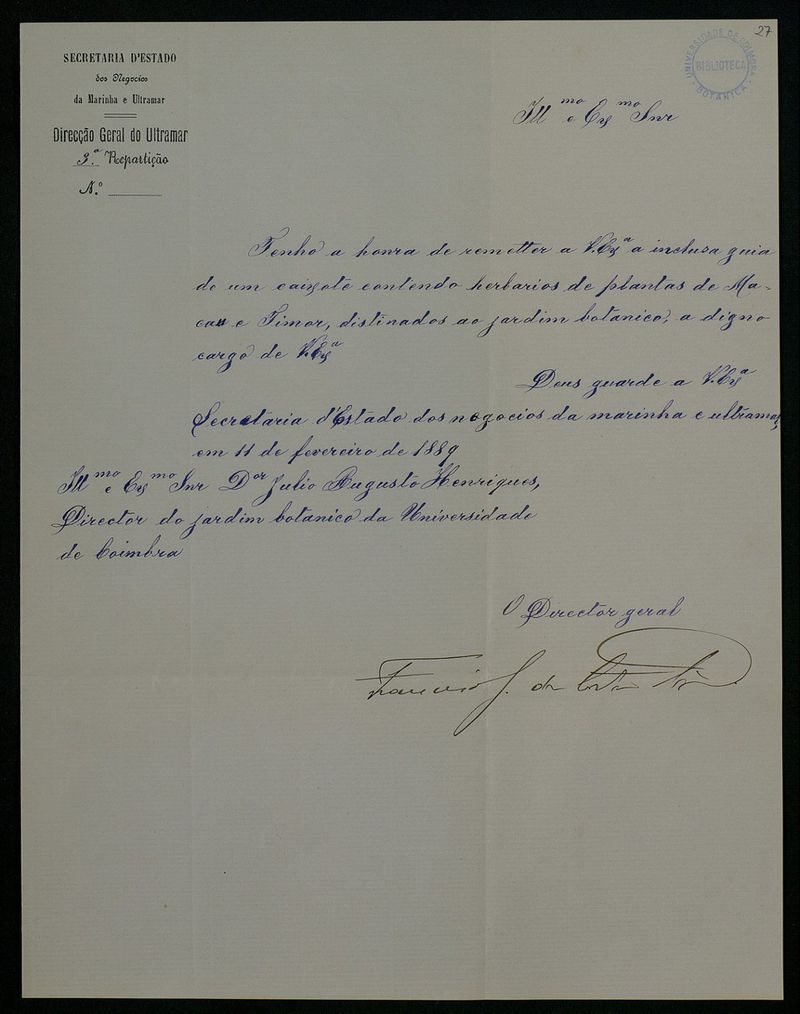 27
UNIVERSIDADE DE COIMBRA
BIBLIOTECA
BOTANICA
SECRETARIA D'ESTADO
dos Negocios
da Marinha e Ultramar
Direcção Geral do Ultramar
3.ª Repartição
N.º
Illmo e Exmo Snr
Tenho a honra de remetter a V. Exª a inclusa guia
de um caixote contendo herbarios de plantas de Ma-
cau e Timor, distinados ao jardim botanico, a digno
cargo de V. Exª
Deus guarde a V. Exª
Secretaria d'Estado dos negocios da marinha e ultramar,
em 11 de fevereiro de 1889
Illmo e Exmo Snr Dor Julio Augusto Henriques,
Director do jardim botanico da Universidade
de Coimbra
O Director geral
Francisco J. da Costa e Silva